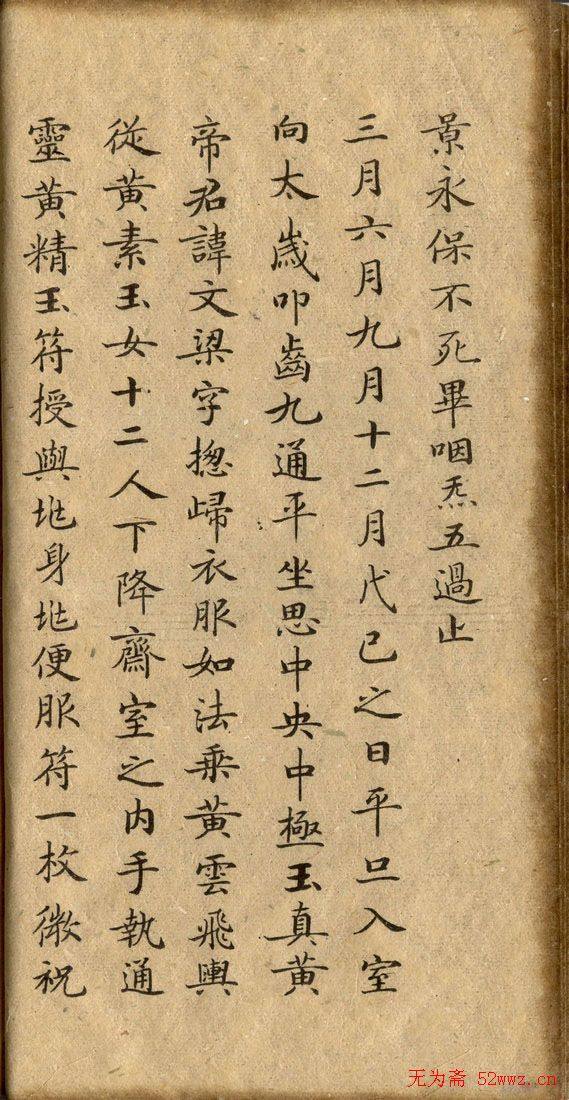 景永保不死畢咽炁五過止
三月六月九月十二月戊己之日平旦入室
向太歲叩齒九通平坐思中央中極玉真黃
帝君諱文梁字揔歸衣服如法乘黃雲飛輿
從黃素玉女十二人下降齋室之內手執通
靈黃精玉符授與兆身兆便服符一枚微祝
无为斋 52wwz.cn